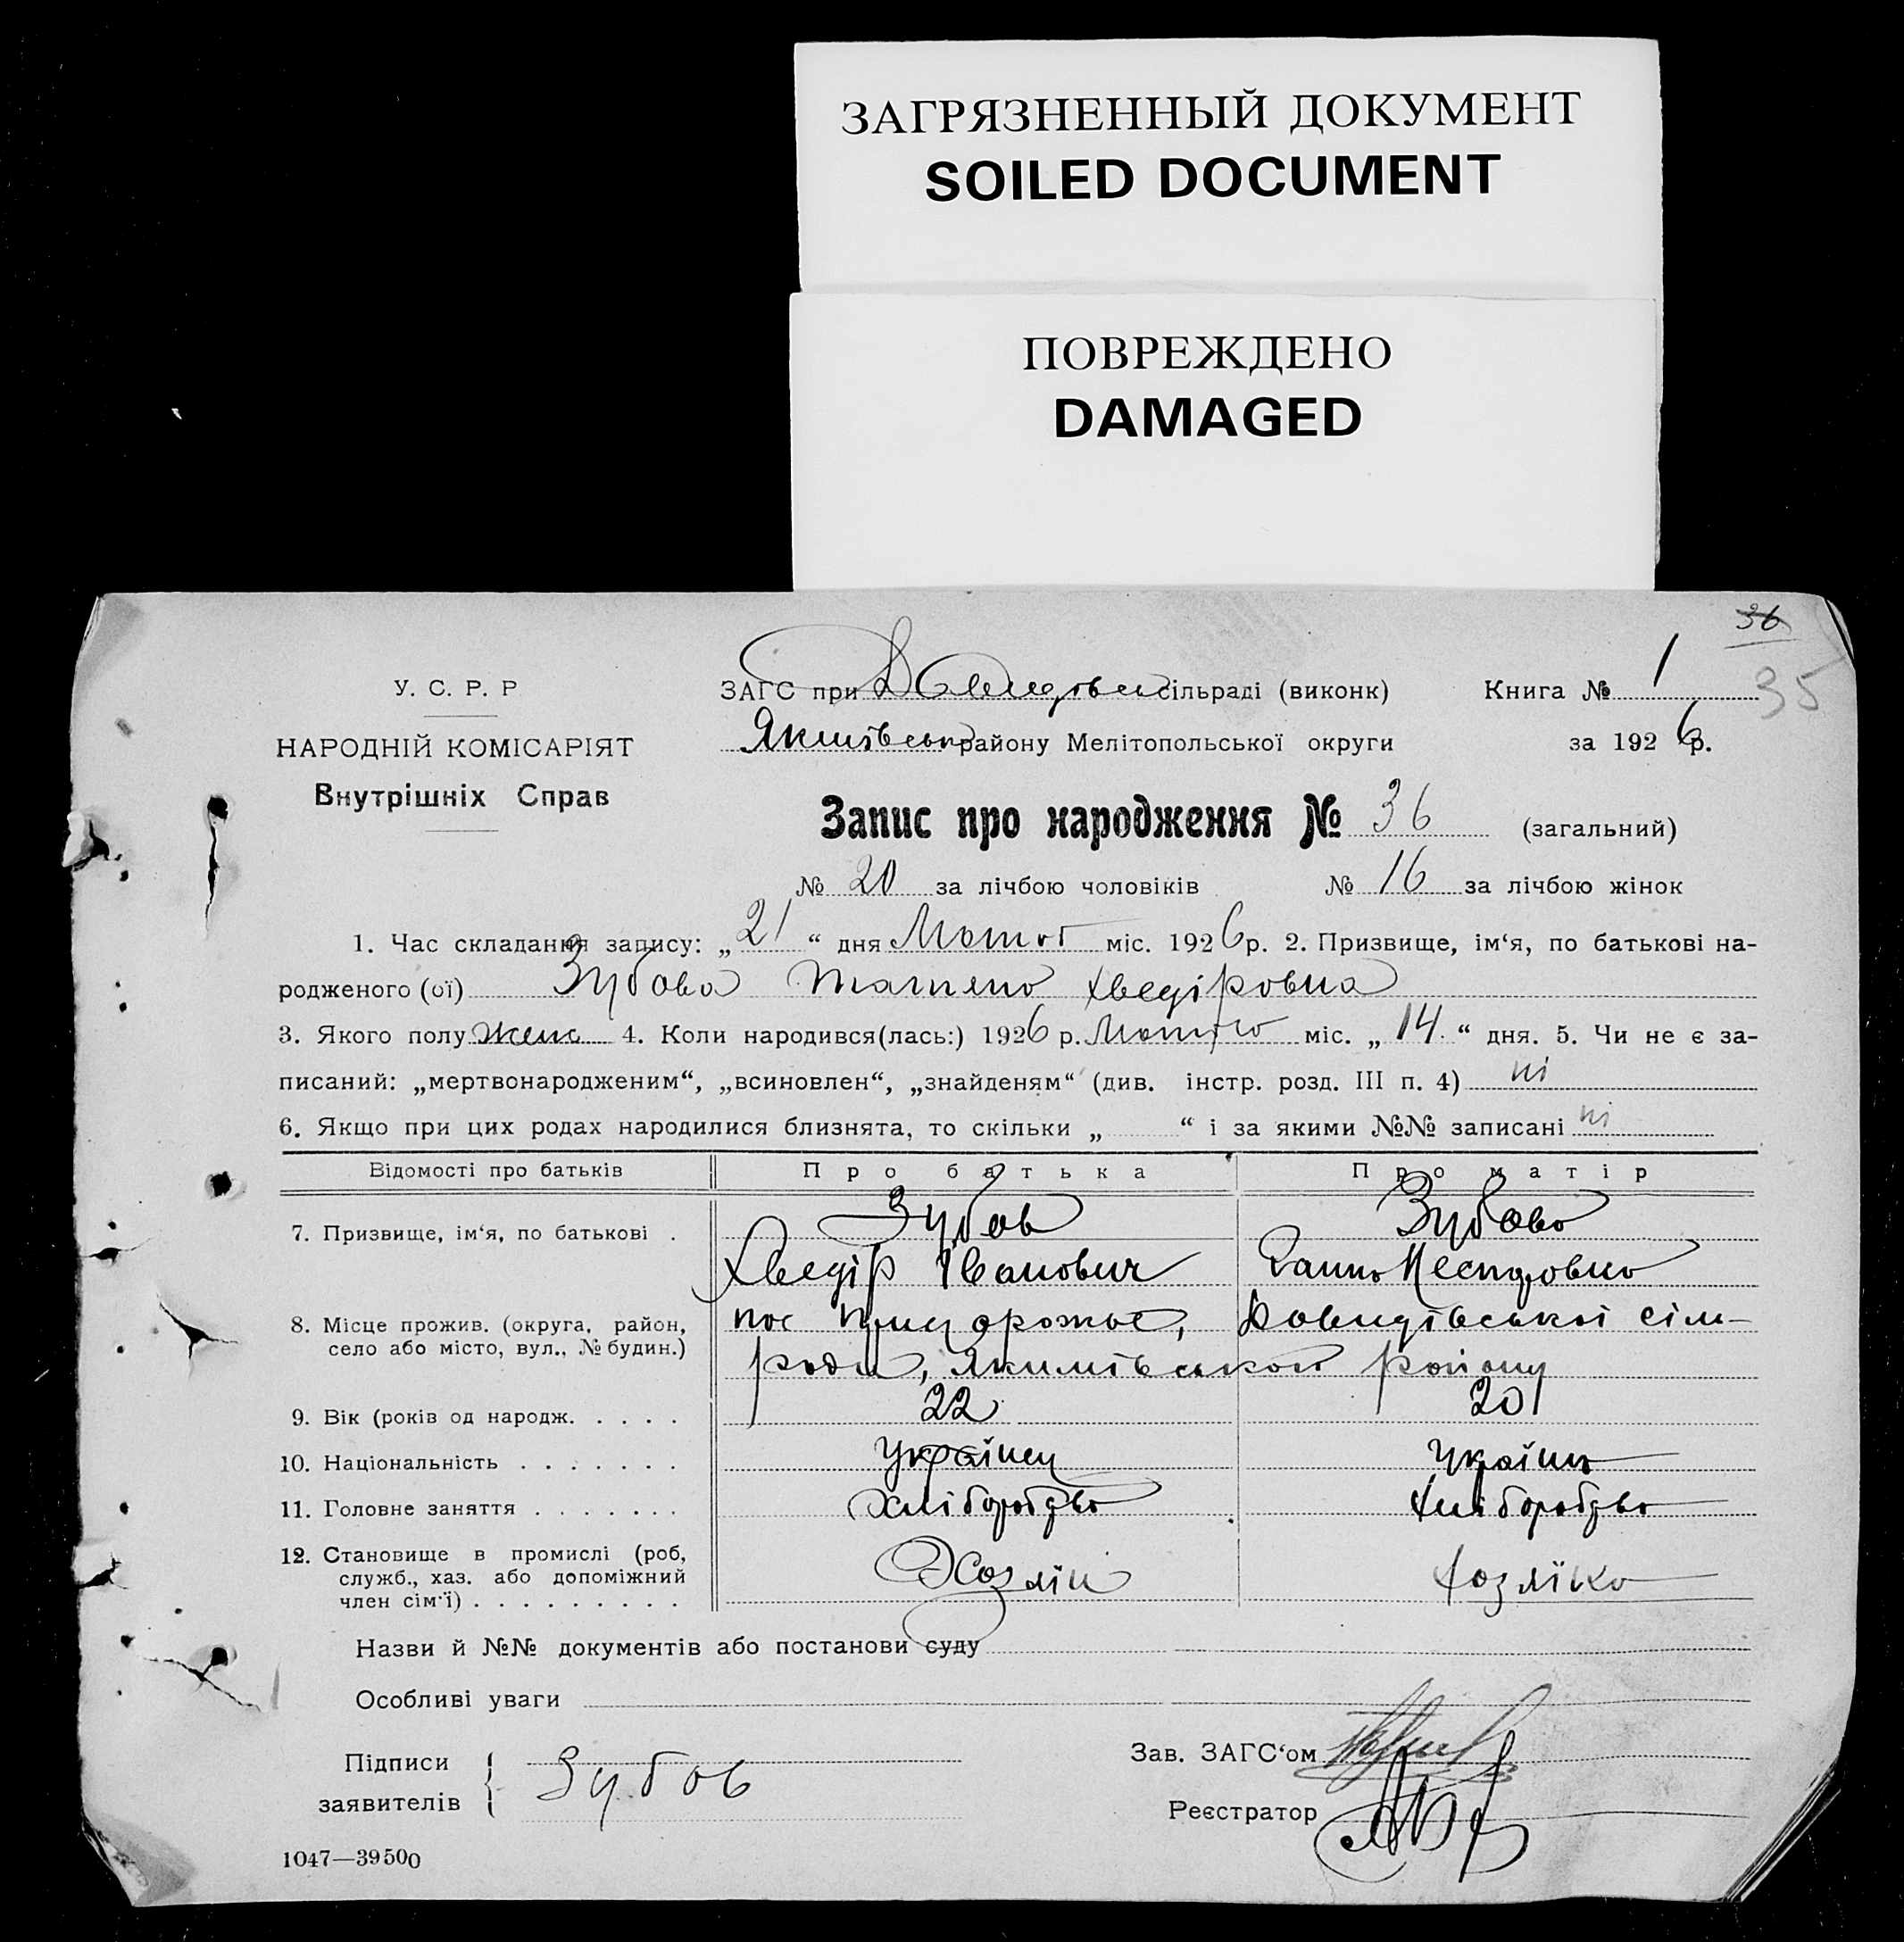 ЗАГРЯЗНЕННЫЙ ДОКУМЕНТ
SOILED DOCUMENT
ПОВРЕЖДЕНО
DAMAGED
36
35
У. С. Р. Р
НАРОДНІЙ КОМІСАРІЯТ
Внутрішніх Справ
ЗАГС при Давидівськ сільраді (виконк) Книга № 1
Якимівськ району Мелітопольської округи за 1926 р.
Запис про народження № 36 (загальний)
№ 20 за лічбою чоловіків № 16 за лічбою жінок
1. Час складання запису: „21“ дня Лютог міс. 1926 р. 2. Призвище, ім‘я, по батькові на-
родженого (ої) Зубова Хведіровна
3. Якого полу женс 4. Коли народився(лась:) 1926 р. Лютого міс. „14.“ дня. 5. Чи не є за-
писаний: „мертвонародженим“, „всиновлен“, „знайденям“ (див. інстр. розд. III п. 4) ні
6. Якщо при цих родах народилися близнята, то скільки „ “ і за якими №№ записані ні
Відомості про батьків Про батька Про матір
7. Призвище, ім‘я, по батькові . Зубов Зубова
Хведір Іванович Ганна Несторовна
8. Місце прожив. (округа, район, село або місто, вул., № будин.) пос Давидівської сіль-
ради, Якимівського району
9. Вік (років од народж. . . . . 22 20
10. Національність . . . . . . . Українец Українка
11. Головне заняття . . . . . . . Хліборобдво Хліборобдво
12. Становище в промислі (роб, служб., хаз. або допоміжний член сім‘ї) . . . . . . . . . Хозяїн Хозяїка
Назви й №№ документів або постанови суду
Особливі уваги
Підписи заявителів { Зубов
Зав. ЗАГС‘ом
Реєстратор
1047—39500